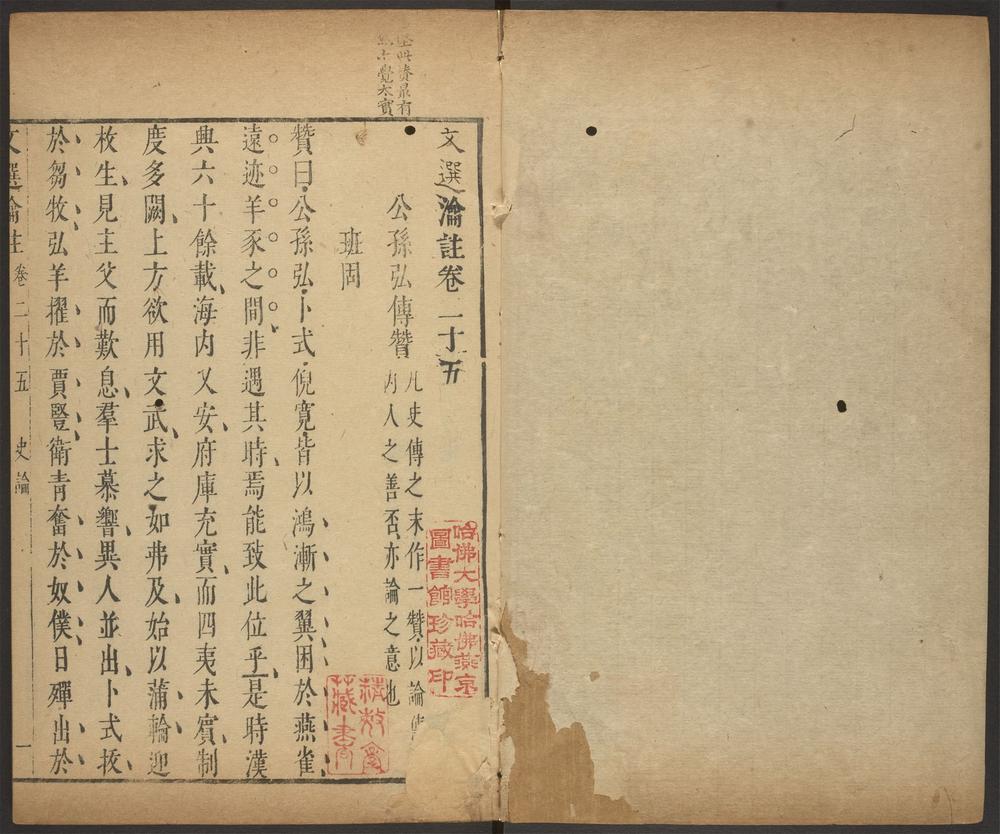 文選瀹註卷二十五
公孫弘傳贊
凡史傳之末作一贊以論傳
內人之善否亦論之意也
班固
贊曰公孫弘卜式倪寬皆以鴻漸之翼困於燕雀
遠迹羊豕之間非遇其時焉能致此位乎是時漢
興六十餘載海內乂安府庫充實而四夷未賓制
度多闕上方欲用文武求之如弗及始以蒲輪迎
枚生見主父而歎息羣士慕響異人並出卜式㧞
於芻牧弘羊擢於賈豎衛青奮於奴僕日磾出於
文選瀹註卷二十五 史論 一
哈佛大學哈佛燕京
圖書館珍藏印
藏書